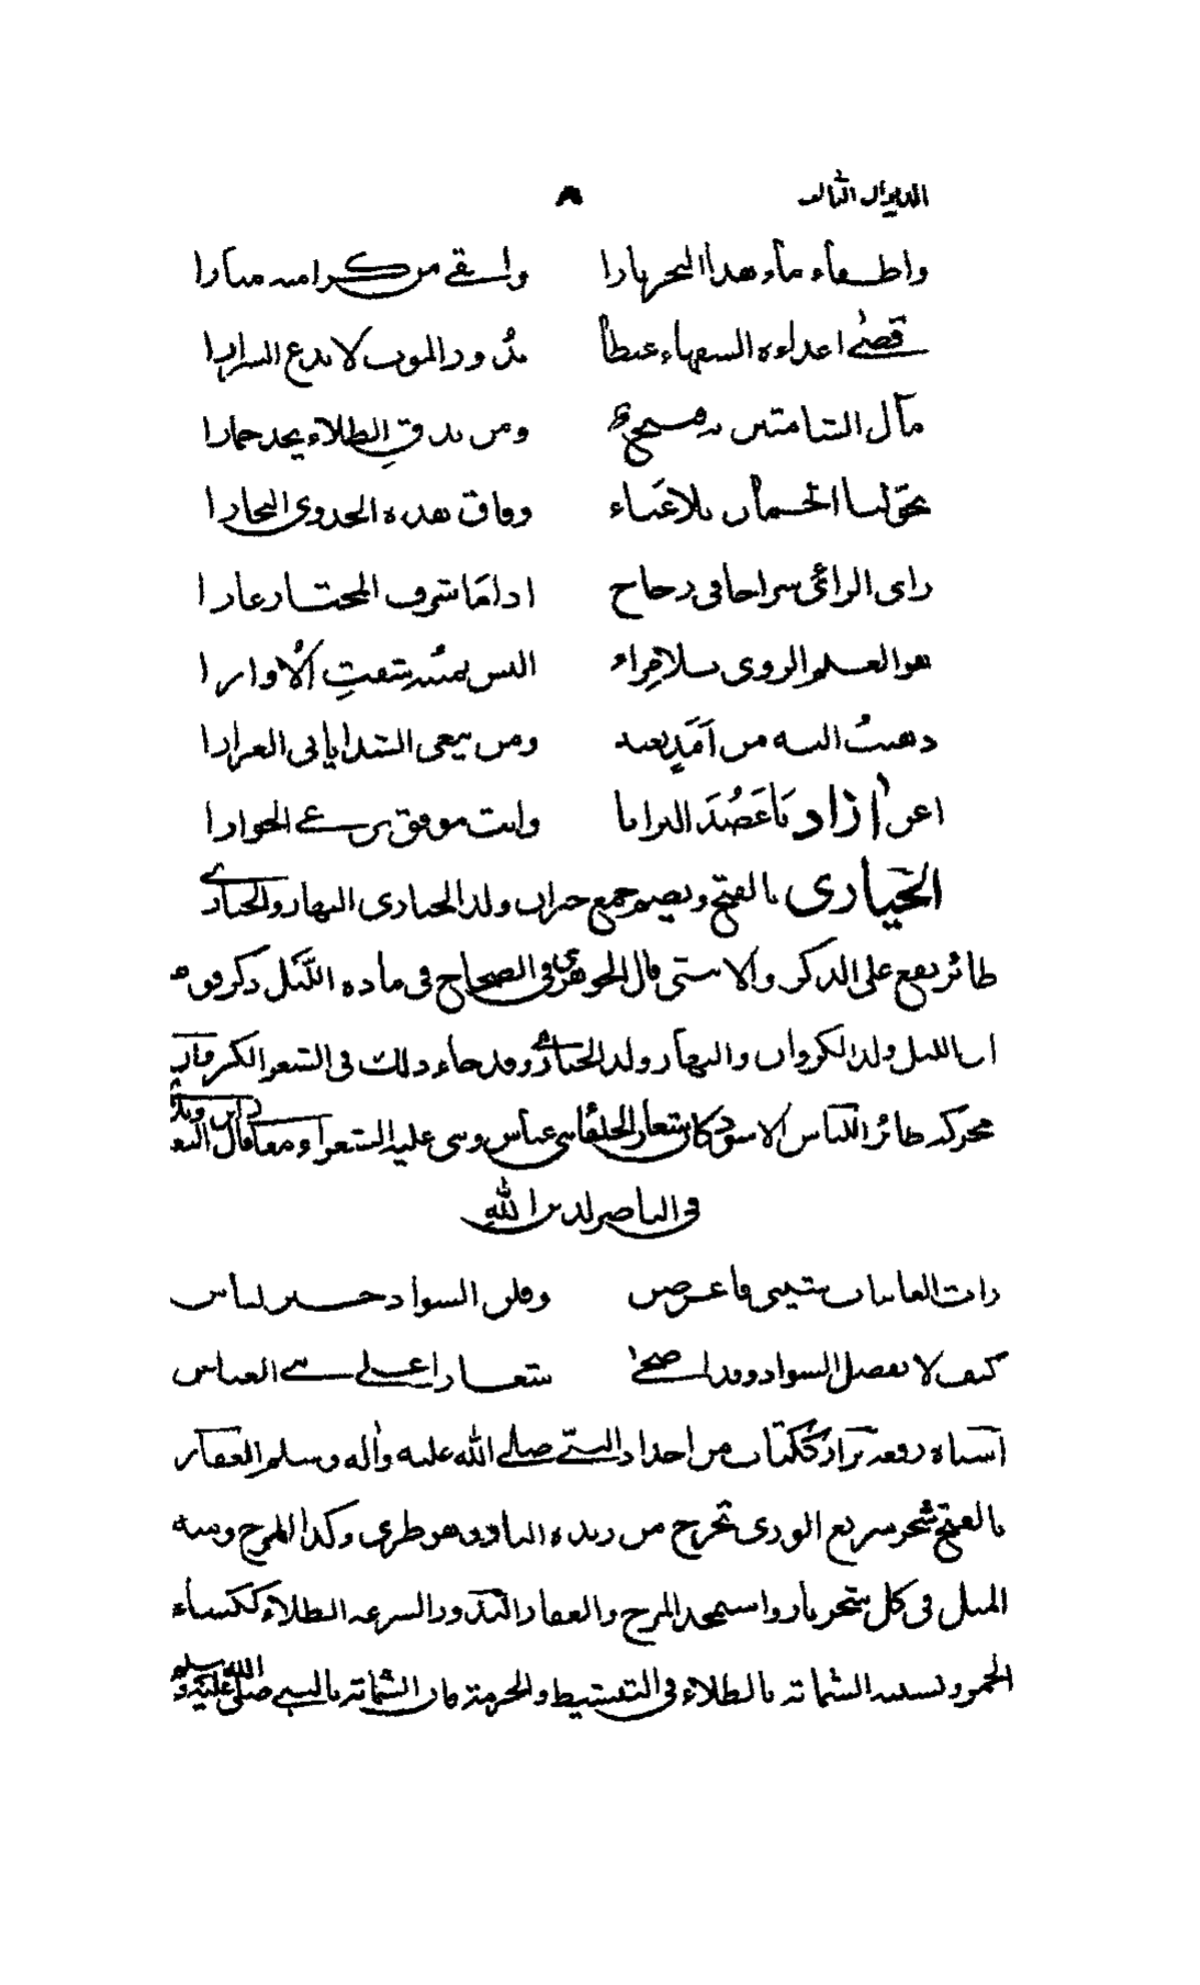 الديوان الثالث ٨
واطفاء ماء هذا البحر نارا وابقى من كرامته منارا
قضى اعداءه السفهاء غيظا بذور الموت لا تدع السرارا
مآل الشامتين به قبيح ومن يذق الطلاء يجد خمارا
يحق لنا بلا عناء وفاق هذه الجدوى البحارا
راى الرائى سراجا فى زجاج اذا ما شرف المختار غارا
هو العلم الروى بلا مراء اليس يمينه شقت الاوارا
ذهبت اليه من امد بعيد ومن يبغى الشذا ياتى العرارا
اعن آزاد يا عضد البرايا وانت موفق ترعى الجوارا
الحيارى بالفتح ويضم جمع حيران ولد الحبارى النهار والحبارى
طائر يقع على الذكر والانثى قال الجوهرى فى الصحاح فى مادة الليل ذكر قوم
ان الليل ولد الكروان والنهار ولد الحبارى وقد جاء ذلك فى الشعر الكروان
محركة طائر اللباس الاسود كان شعار الخلفاء بنى عباس وبنى عليه الشعراء
فى الناصر لدين الله
رات الغانيات شيبى فاعرضن وقلن السواد خير لباس
كيف لا يفضل السواد وقد اضحى شعارا على بنى العباس
من اجداد النبى صلى الله عليه وآله وسلم العفار
بالفتح شجر سريع الورى تخرج من زنده النار وهو طرى وكذا المرخ ومنه
المثل فى كل شجر نار واستمجد المرخ والعفار السرعة الطلاء ككساء
الخمر وتشبيه الشماتة بالطلاء فى التنشيط والحرمة فان الشماتة بالنبى صلى الله عليه وسلم